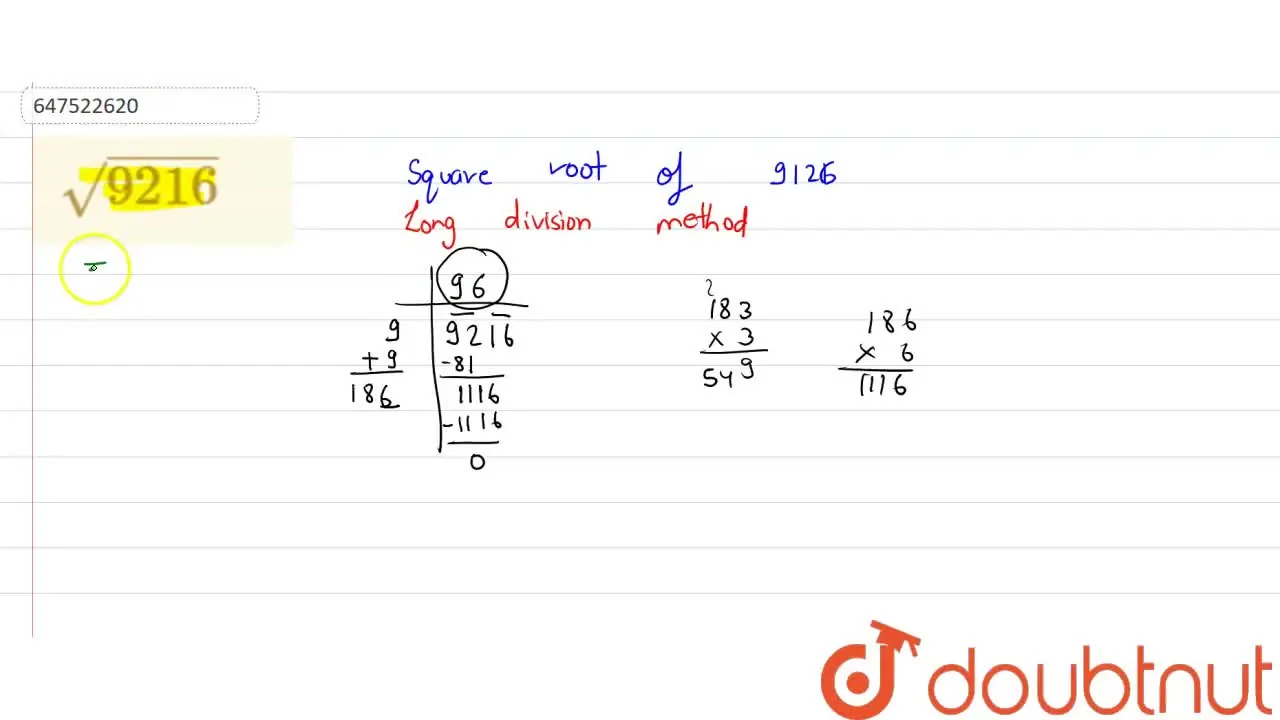 647522620
√9216
Square root of 9126
Long division method
96
9 9216
+9 -81
186 1116
-1116
0
2
183
x 3
549
186
x 6
1116
doubtnut